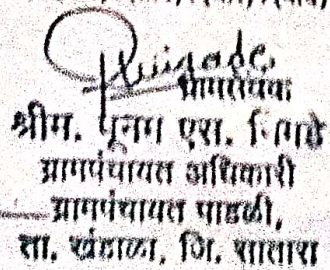 ग्रामसेवक
श्रीम. पूनम एस.
ग्रामपंचायत अधिकारी
ग्रामपंचायत पाडळी,
ता. खंडाळा, जि. सातारा